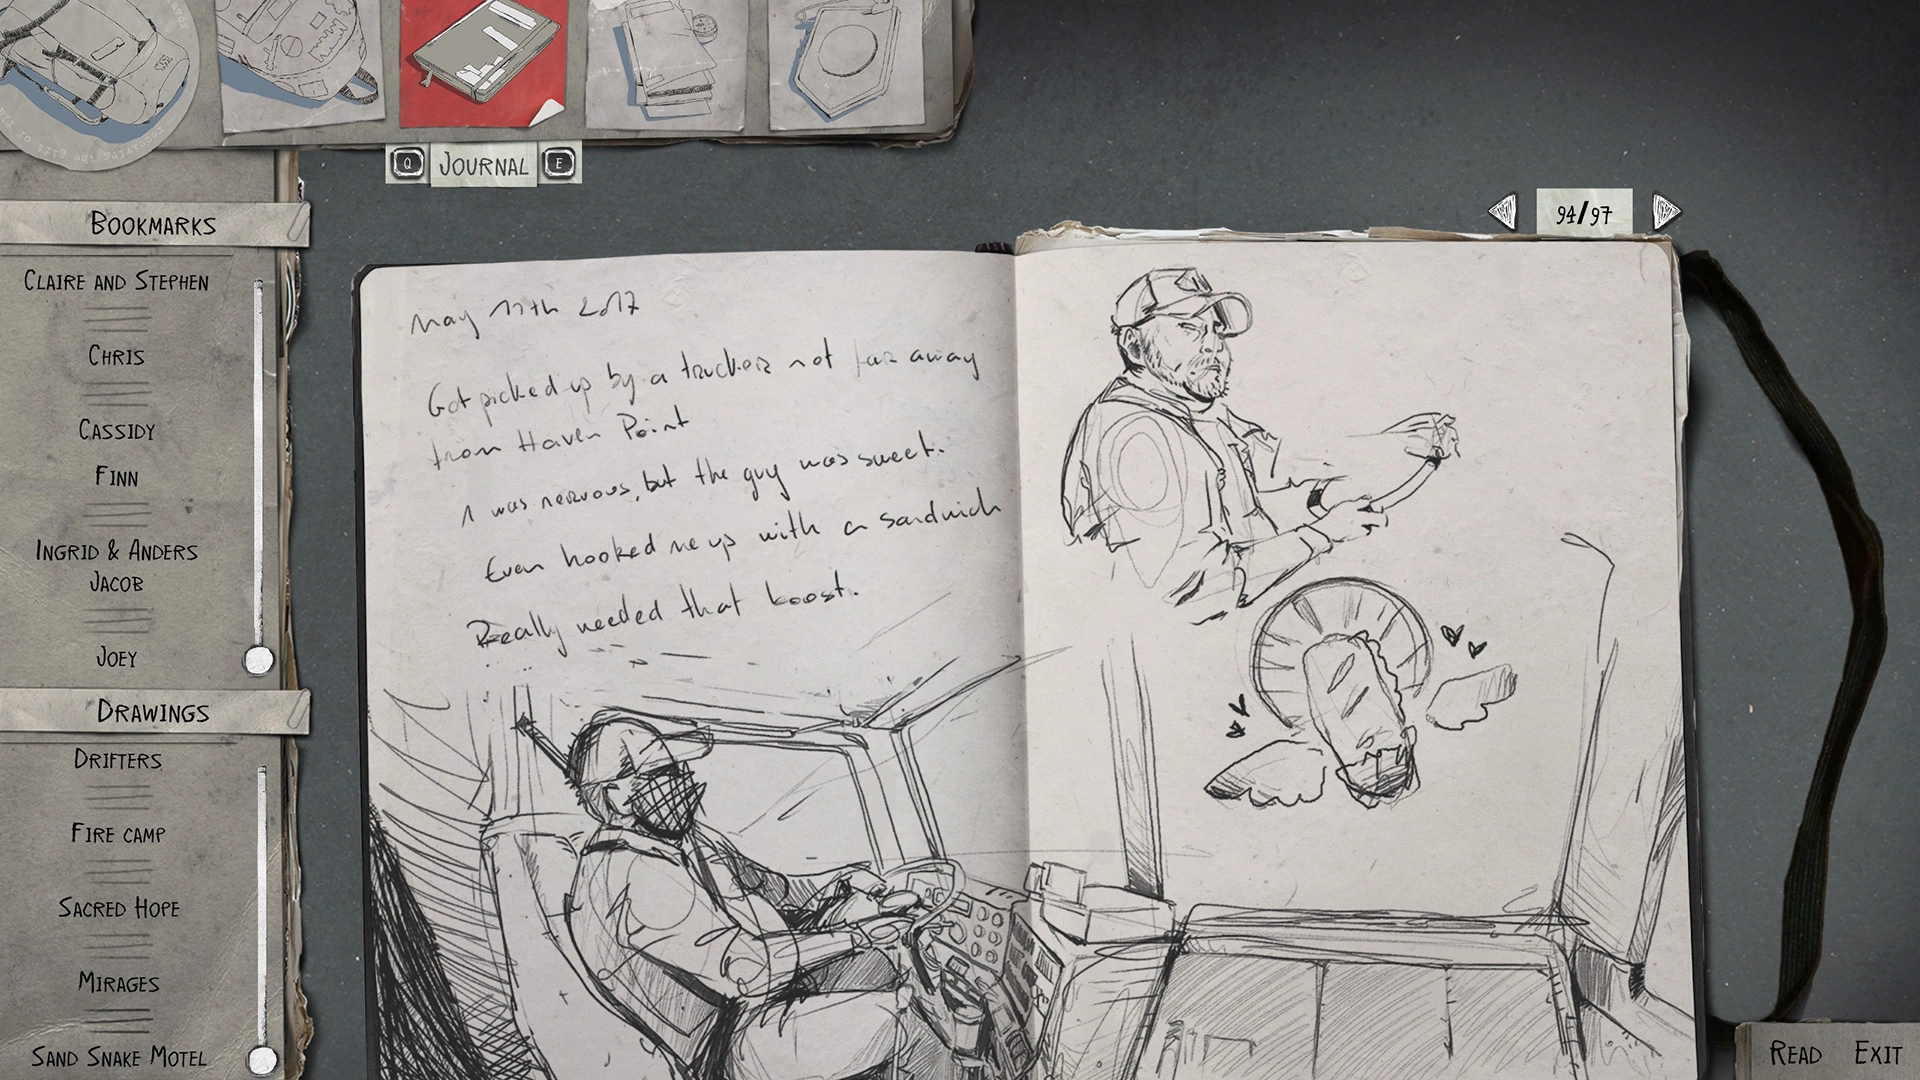 Q JOURNAL E
94/97
BOOKMARKS
CLAIRE AND STEPHEN
CHRIS
CASSIDY
FINN
INGRID & ANDERS
JACOB
JOEY
DRAWINGS
DRIFTERS
FIRE CAMP
SACRED HOPE
MIRAGES
SAND SNAKE MOTEL
May 11th 2017
Got picked up by a trucker not far away
from Haven Point
I was nervous, but the guy was sweet.
Even hooked me up with a sandwich
Really needed that boost.
READ EXIT